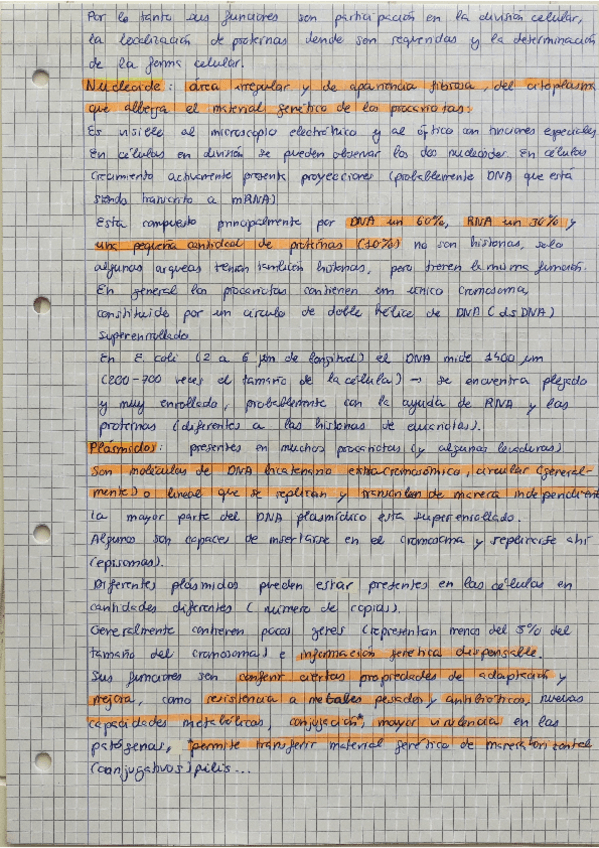 Por lo tanto sus funciones son participación en la división celular,
la localización de proteínas donde son requeridas y la determinación
de la forma celular.
Nucleoide: área irregular y de apariencia fibrosa, del citoplasma
que alberga el material genético de los procariotas.
Es visible al microscopio electrónico y al óptico con tinciones especiales.
En células en división se pueden observar los dos nucleoides. En células
crecimiento activamente presenta proyecciones (probablemente DNA que está
siendo transcrito a mRNA)
Esta compuesto principalmente por DNA un 60%, RNA un 30% y
una pequeña cantidad de proteínas (10%) no son histonas, solo
algunas arqueas tienen también histonas, pero tienen la misma función.
En general los procariotas contienen em unico cromosoma,
constituido por un circulo de doble hélice de DNA (dsDNA)
superenrollado
En E. coli (2 a 6 µm de longitud) el DNA mide 1400 µm
(200-700 veces el tamaño de la célula) → se encuentra plegado
y muy enrollado, probablemente con la ayuda de RNA y las
proteínas (diferentes a las histonas de eucariotas).
Plásmidos: presentes en muchos procariotas (y algunas levaduras)
Son moléculas de DNA bicatenario extracromosómico, circular (general-
mente) o lineal que se replican y transcriben de manera independiente
La mayor parte del DNA plasmídico esta superenrollado.
Algunos son capaces de insertarse en el cromosoma y replicarse ahí
(episomas).
Diferentes plásmidos pueden estar presentes en las células en
cantidades diferentes (numero de copias).
Generalmente contienen pocos genes (representan menos del 5% del
tamaño del cromosoma) e información genética dispensable.
Sus funciones son conferir ciertas propiedades de adaptación y
mejora, como resistencia a metales pesados y antibióticos, nuevas
capacidades metabólicas, conjugación*, mayor virulencia en las
patógenas, *permite transferir material genético de manera horizontal
(conjugativos) pilis...